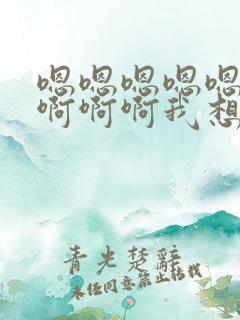 嗯嗯嗯嗯嗯
啊啊啊我想
青光楚辞
未经同意禁止转载